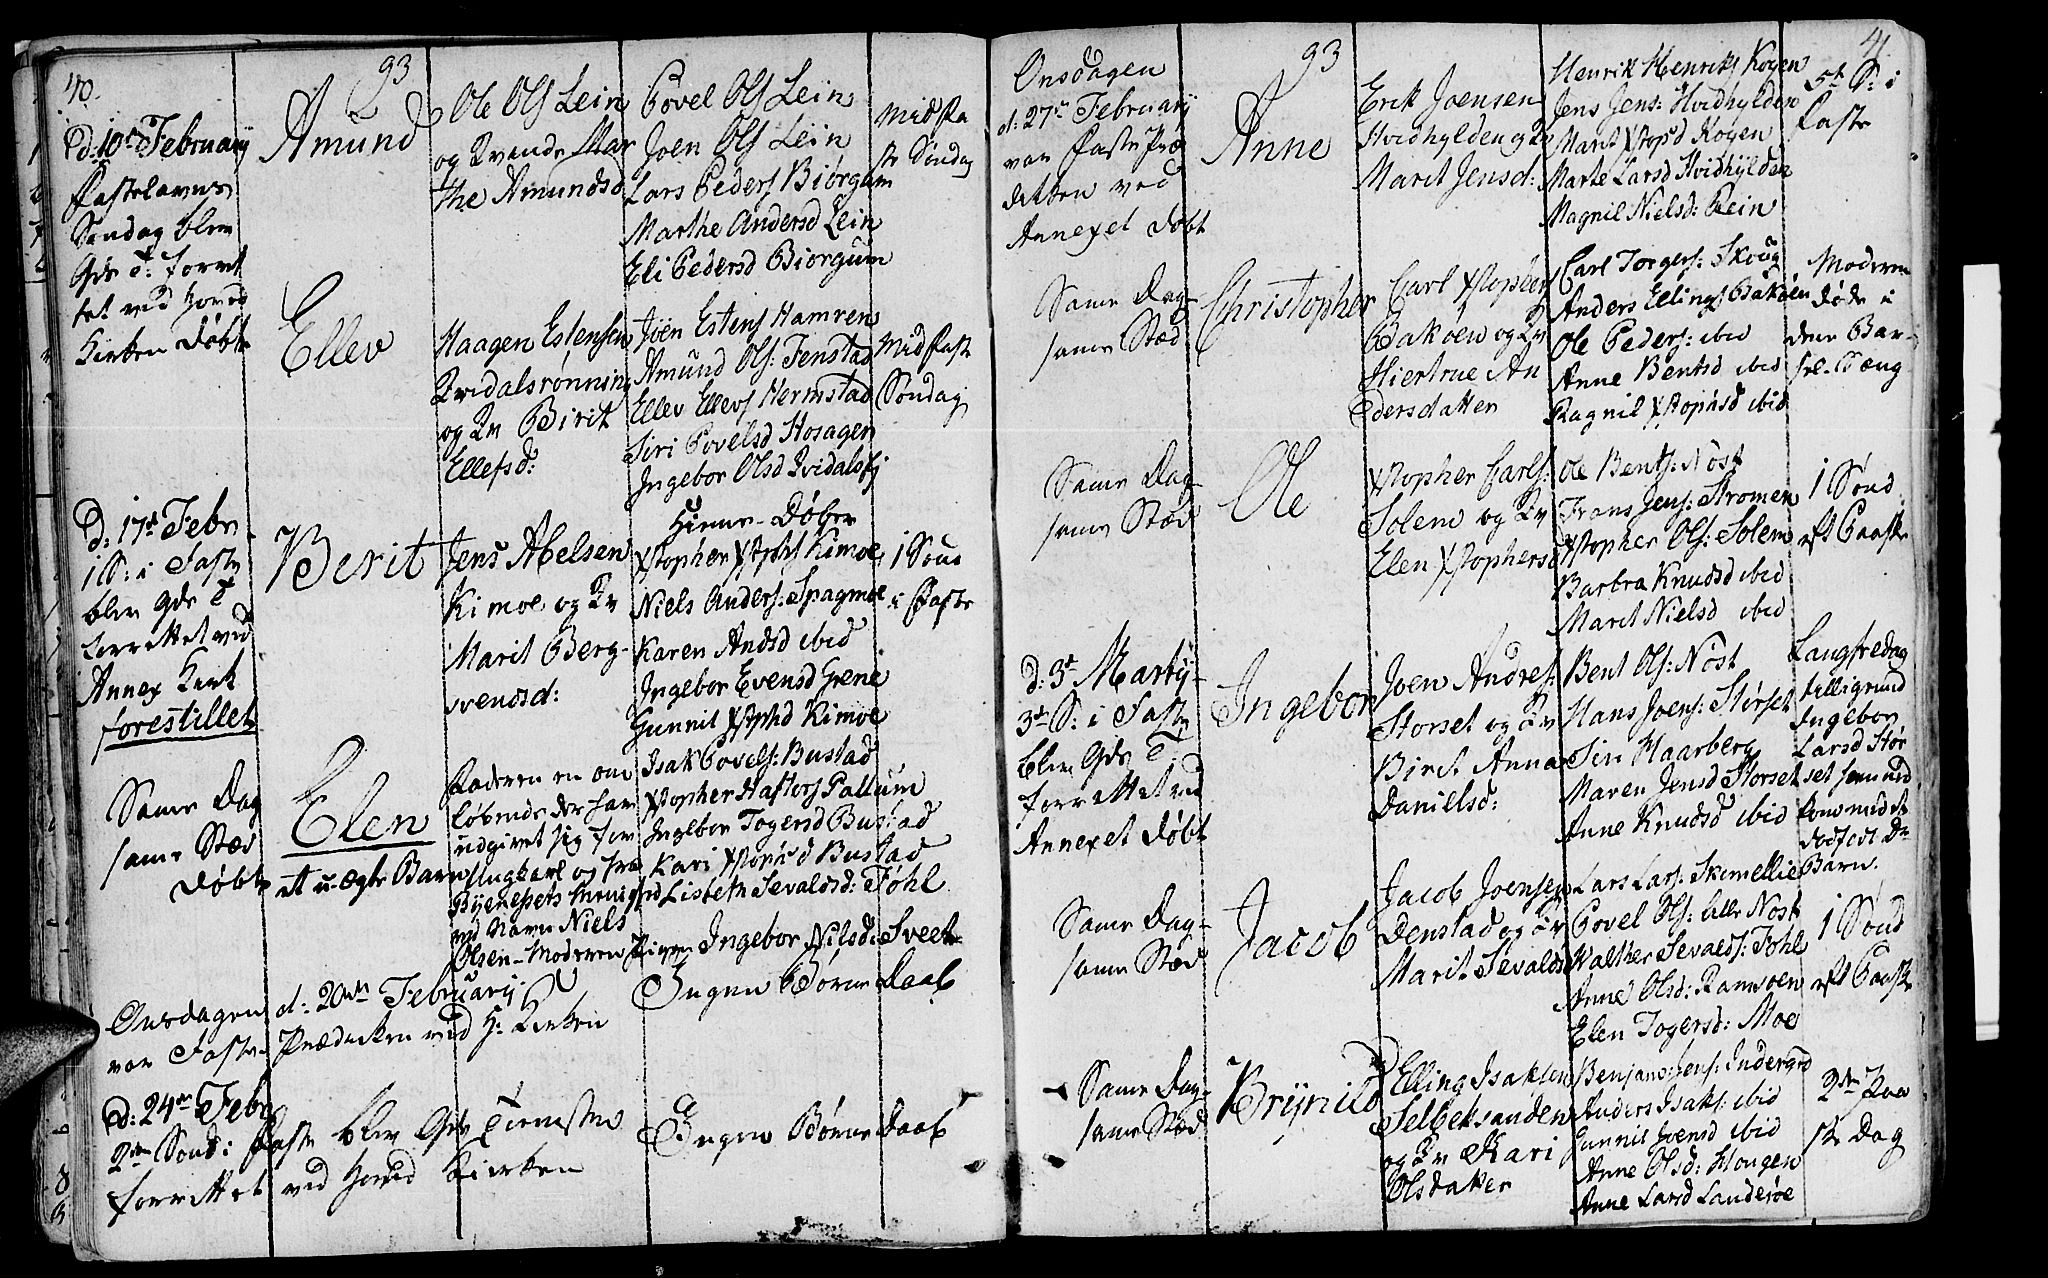 40.
93
D: 10de February
Fastelavns
Søndag blev
Gds T: forret
tet ved Hoved
Kirken Døbt
Amund
Ole Ols Lein
og Qvinde Mar
the Amundsd
Povel Ols Lein
Joen Ols Lein
Lars Peders Biörgum
Marthe Andersd Lein
Eli Pedersd Biörgum
Midfa
ste Søndag
Ellev
Haagen Estensen
Qvidalsrønning
og Qv Birit
Ellefsd:
Joen Estens Hamren
Amund Ols: Jenstad
Ellev Ellevs Hermstad
Siri Povelsd Hosagen
Ingebor Olsd
Midfaste
Søndag
D: 17de Febr
1 S: i Faste
blev Gds T
forrettet ved
Annex Kirk
forestillet
Berit
Jens Abelsen
Kimoe og Qv
Marit Berg-
svendsd:
Hiemme-Døbte
Xstopher Xstophs Kimoe
Niels Anders: Spagmoe
Karen Andsd ibid
Ingebor Evensd Grene
Gunnil Xstophd Kimoe
1 Sønd
i Faste
Same Dag
same Stæd
Døbt
Elen
et u-ægte Barn
Faderen en om
løbende der har
udgivet sig for
Ungkarl og fra
Byenessets
ved Navn Niels
Olsen-Moderen Pigen Ingebor Nilsd: Sveet
Isak Povels: Bustad
Xstopher Haftors Pallum
Ingebor Togersd Bustad
Kari Xstophsd Bustad
Lisbeth Sevaldsd: Føhl
Onsdagen d: 20de February
var Faste-Prædicken ved H: Kirken
Ingen Börne Daab
D: 24de Febr
2den Sönd: i Faste blev Gds Tienesten
forrettet ved Hoved Kirken
Ingen Börne Daab
41
93
Onsdagen
d: 27de February
var Faste Præ
diken ved
Annexet Døbt
Anne
Erik Joensen
Hvidhylden og Qv
Marit Jensd:
Henrik Henriks Koyen
Jens Jens: Hvidhylden
Marit Xstopsd Koyen
Marte Larsd Hvidhylden
Magnil Nielsd: Rein
5te S: i
Faste
Same Dag
same Stæd
Christopher
Carl Xstophers
Bakøen og Qv
Hiertrue An
dersdatter
Carl Torgers: Skoug
Anders Ellings Bakøen
Ole Peders: ibid
Anne Bentsd ibid
Ragnil Xstophsd ibid
Moderen
døde i
dene Bar-
sel-Sæng
Same Dag
same Stæd
Ole
Xstopher Carls:
Solem og Qv
Elen Xstophersd
Ole Bents: Nöst
Frans Jens: Strømen
Xstopher Ols: Solem
Barbra Knudsd ibid
Marit Nielsd ibid
1 Sönd
eft Paaske
d: 3de Marty
3de S: i Faste
blev Gds T:
forrettet ved
Annexet Døbt
Ingebor
Joen Andres:
Storset og Qv
Birit Anna
Danielsd:
Bent Ols: Nöst
Hans Joens: Störset
Siri Haarberg
Maren Jensd Storset
Anne Knudsd ibid
Langfredag
tilligemed
Ingebor
Larsd Stör
set som ned
kom med et
dødfødt D
Barn.
Same Dag
same Stæd
Jacob
Jacob Joensen
Denstad og Qv
Marit Sevaldsd
Lars Lars: Skimellie
Povel Ols: Lille Nöst
Walther Sevalds: Föhl
Anne Olsd: Ramsøen
Elen Togersd: Moe
1 Sönd
eft Paaske
Same Dag
same Stæd
Brynild
Elling Isaksen
Selbeksanden
og Qv Kari
Olsdatter
Benjam: Jens: Indergrd
Anders Isaks: ibid
Gunnil Joensd ibid
Anne Olsd: Hougen
Anne Larsd Landerøe
2den Paa
ske Dag